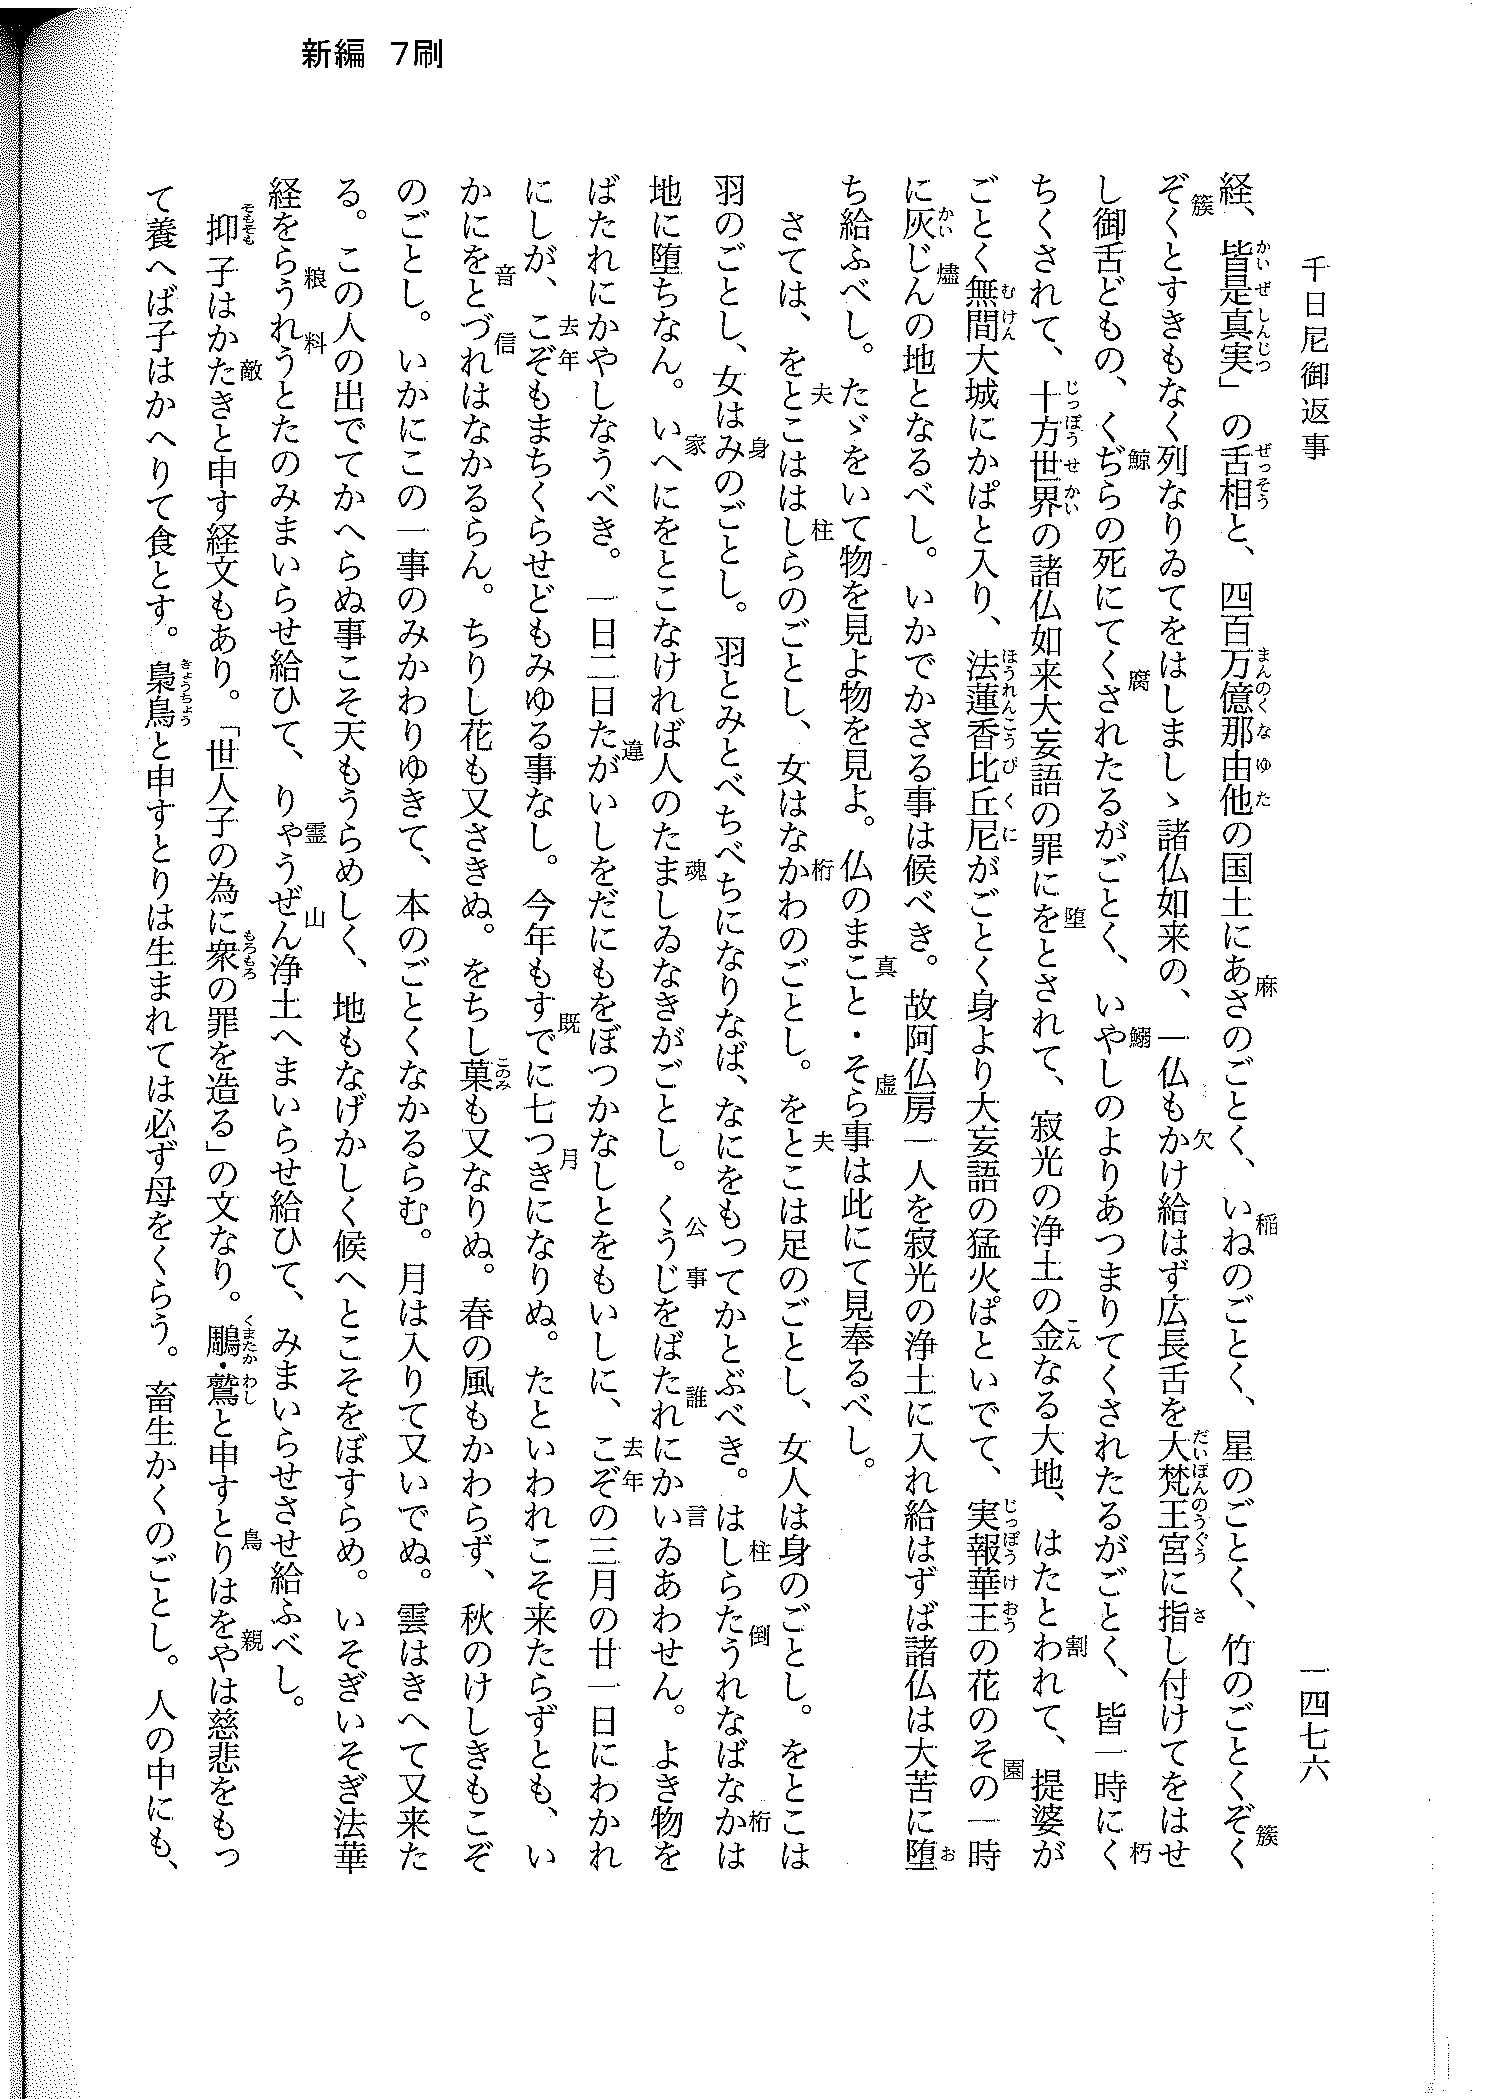 新編 7刷
千日尼御返事
一四七六
経、皆是真実」の舌相と、四百万億那由他の国土にあさのごとく、いねのごとく、星のごとく、竹のごとくぞく
ぞくとすきもなく列なりゐてをはしましゝ諸仏如来の、一仏もかけ給はず広長舌を大梵王宮に指し付けてをはせ
し御舌どもの、くぢらの死にてくされたるがごとく、いやしのよりあつまりてくされたるがごとく、皆一時にく
ちくされて、十方世界の諸仏如来大妄語の罪にをとされて、寂光の浄土の金なる大地、はたとわれて、提婆が
ごとく無間大城にかぱと入り、法蓮香比丘尼がごとく身より大妄語の猛火ぱといでて、実報華王の花のその一時
に灰じんの地となるべし。いかでかさる事は候べき。故阿仏房一人を寂光の浄土に入れ給はずば諸仏は大苦に堕
ち給ふべし。たゞをいて物を見よ物を見よ。仏のまこと・そら事は此にて見奉るべし。
さては、をとこははしらのごとし、女はなかわのごとし。をとこは足のごとし、女人は身のごとし。をとこは
羽のごとし、女はみのごとし。羽とみとべちべちになりなば、なにをもってかとぶべき。はしらたうれなばなかは
地に堕ちなん。いへにをとこなければ人のたましゐなきがごとし。くうじをばたれにかいゐあわせん。よき物を
ばたれにかやしなうべき。一日二日たがいしをだにもをぼつかなしとをもいしに、こぞの三月の廿一日にわかれ
にしが、こぞもまちくらせどもみゆる事なし。今年もすでに七つきになりぬ。たといわれこそ来たらずとも、い
かにをとづれはなかるらん。ちりし花も又さきぬ。をちし菓も又なりぬ。春の風もかわらず、秋のけしきもこぞ
のごとし。いかにこの一事のみかわりゆきて、本のごとくなかるらむ。月は入りて又いでぬ。雲はきへて又来た
る。この人の出でてかへらぬ事こそ天もうらめしく、地もなげかしく候へとこそをぼすらめ。いそぎいそぎ法華
経をらうれうとたのみまいらせ給ひて、りやうぜん浄土へまいらせ給ひて、みまいらせさせ給ふべし。
抑子はかたきと申す経文もあり。「世人子の為に衆の罪を造る」の文なり。鵰・鷲と申すとりはをやは慈悲をもっ
て養へば子はかへりて食とす。梟鳥と申すとりは生まれては必ず母をくらう。畜生かくのごとし。人の中にも、